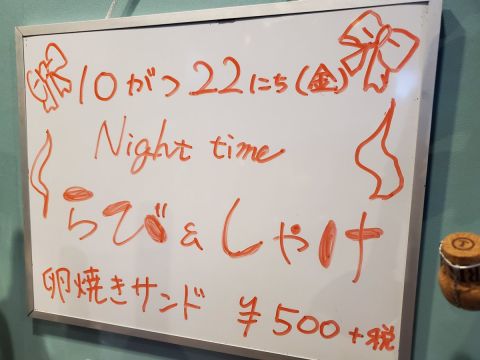 10がつ22にち(金)
Night time
らび&しゃけ
卵焼きサンド ¥500+税